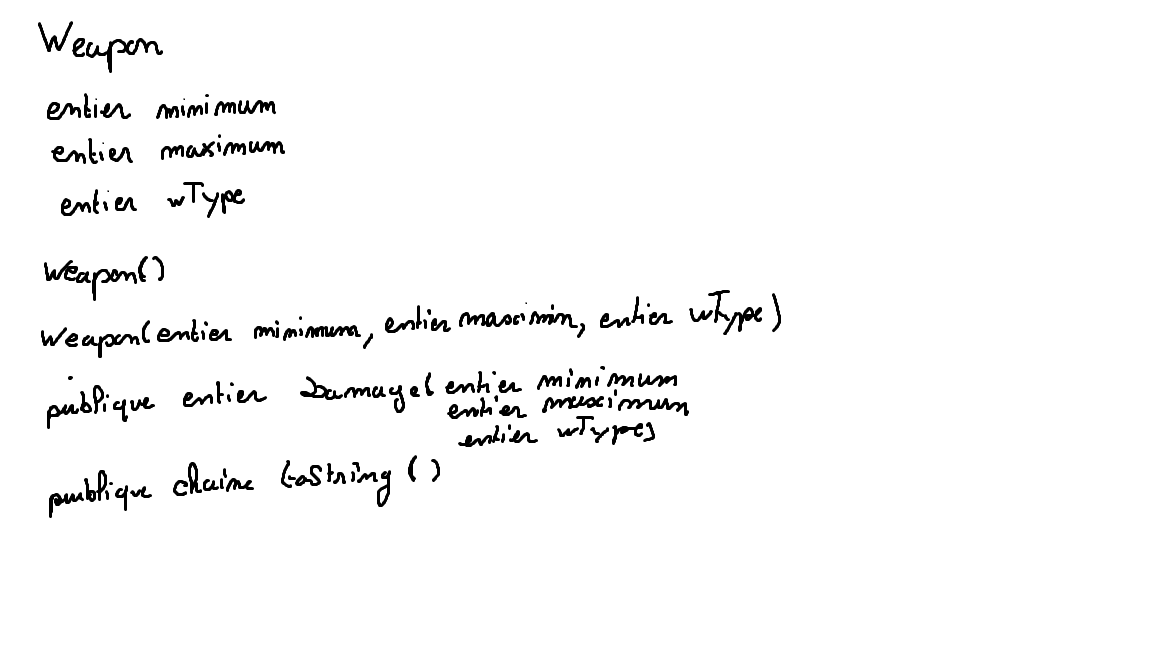 Weapon
entier minimum
entier maximum
entier wType
Weapon()
Weapon(entier minimum, entier maximin, entier wType)
publique entier Damage( entier minimum
entier maximum
entier wType)
publique chaine toString ()